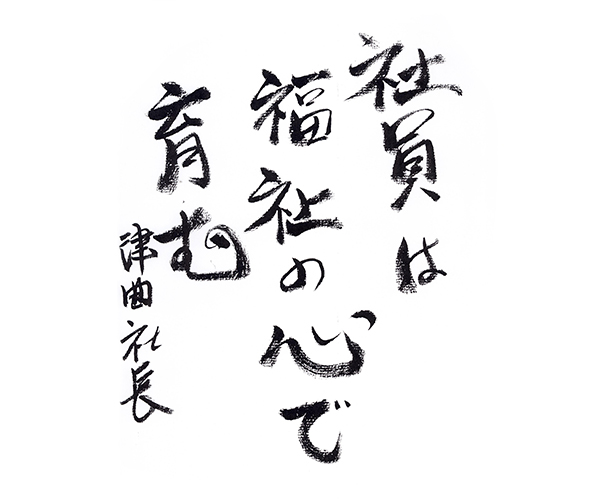 社員は
福祉の心で
育む
津曲社長